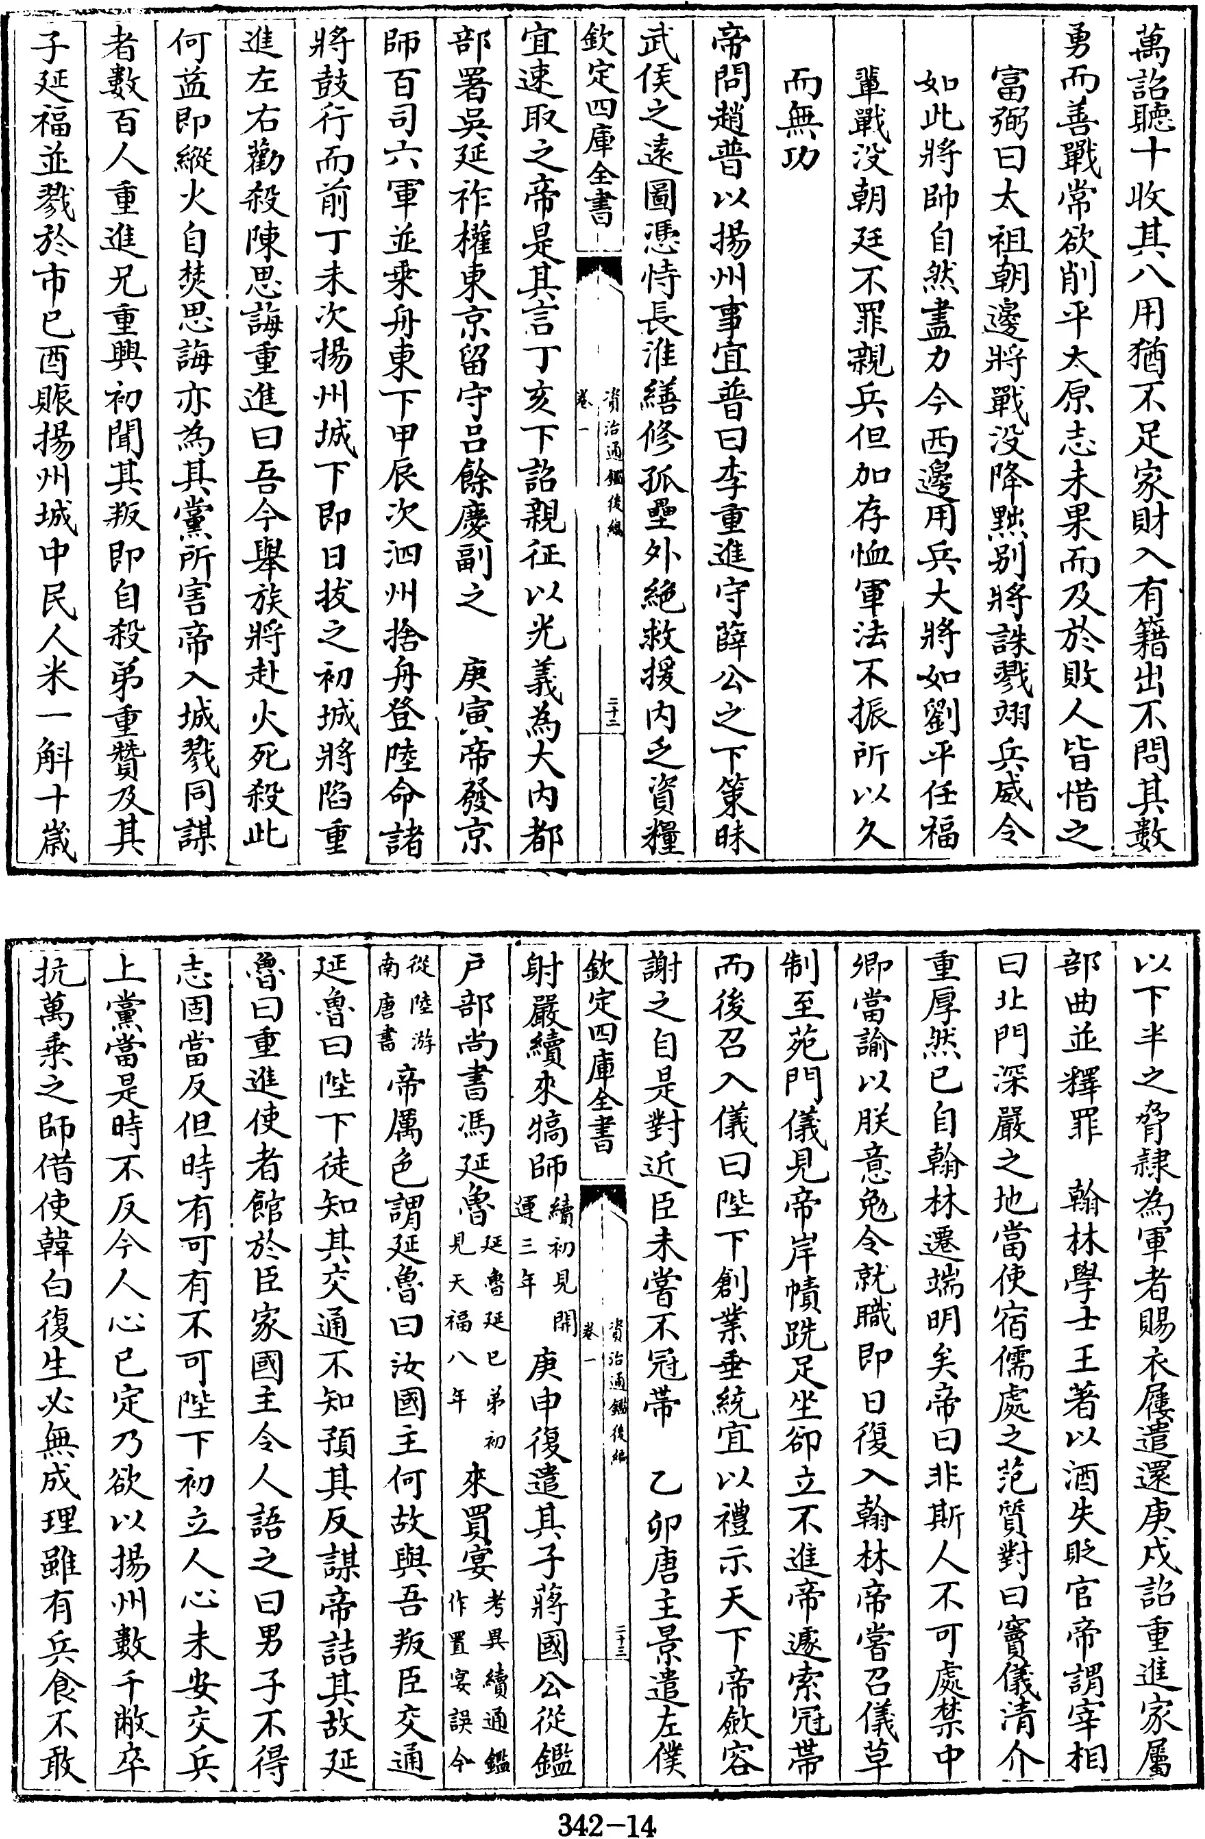 萬詔聽十收其八用猶不足家財入有籍出不問其數
勇而善戰常欲削平太原志未果而及於敗人皆惜之
富弼曰太祖朝邊將戰没降黜别將誅戮翊兵威令
如此將帥自然盡力今西邊用兵大將如劉平任福
輩戰没朝廷不罪親兵但加存恤軍法不振所以久
而無功
帝問趙普以揚州事宜普曰李重進守薛公之下策昧
武侯之遠圖憑恃長淮繕修孤壘外絶救援内乏資糧
欽定四庫全書
資治通鑑後編
卷一
二十二
宜速取之帝是其言丁亥下詔親征以光義為大内都
部署吳延祚權東京留守吕餘慶副之　庚寅帝發京
師百司六軍並乘舟東下甲辰次泗州捨舟登陸命諸
將鼓行而前丁未次揚州城下即日拔之初城將陷重
進左右勸殺陳思誨重進曰吾今舉族將赴火死殺此
何益即縱火自焚思誨亦為其黨所害帝入城戮同謀
者數百人重進兄重興初聞其叛即自殺弟重贊及其
子延福並戮於市已酉賑揚州城中民人米一斛十歲
以下半之脅隸為軍者賜衣屨遣還庚戌詔重進家屬
部曲並釋罪　翰林學士王著以酒失貶官帝謂宰相
曰北門深嚴之地當使宿儒處之范質對曰竇儀清介
重厚然已自翰林遷端明矣帝曰非斯人不可處禁中
卿當諭以朕意勉令就職即日復入翰林帝嘗召儀草
制至苑門儀見帝岸幘跣足坐卻立不進帝遽索冠帶
而後召入儀曰陛下創業垂統宜以禮示天下帝斂容
謝之自是對近臣未嘗不冠帶　乙卯唐主景遣左僕
欽定四庫全書
資治通鑑後編
卷一
二十三
射嚴續來犒師續初見開運三年　庚申復遣其子蔣國公從鑑
戸部尚書馮延魯延魯延已弟初見天福八年　來買宴考異續通鑑作置宴誤今
從陸游南唐書　帝厲色謂延魯曰汝國主何故與吾叛臣交通
延魯曰陛下徒知其交通不知預其反謀帝詰其故延
魯曰重進使者館於臣家國主令人語之曰男子不得
志固當反但時有可有不可陛下初立人心未安交兵
上黨當是時不反今人心已定乃欲以揚州數千敝卒
抗萬乘之師借使韓白復生必無成理雖有兵食不敢
342-14